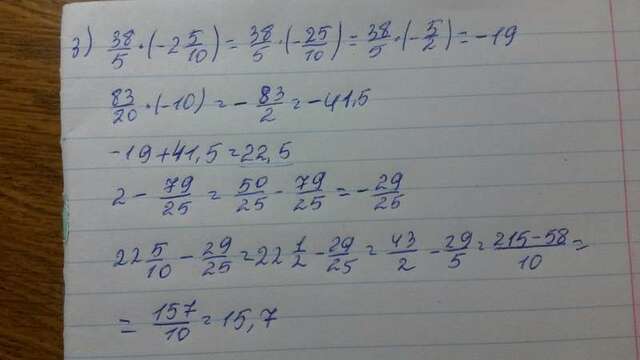 3) 38/5 · (-2 5/10) = 38/5 · (-25/10) = 38/5 · (-5/2) = -19
83/20 · (-10) = - 83/2 = -41,5
-19+41,5=22,5
2 - 79/25 = 50/25 - 79/25 = - 29/25
22 5/10 - 29/25 = 22 1/2 - 29/25 = 43/2 - 29/5 = 215-58/10 =
= 157/10 = 15,7